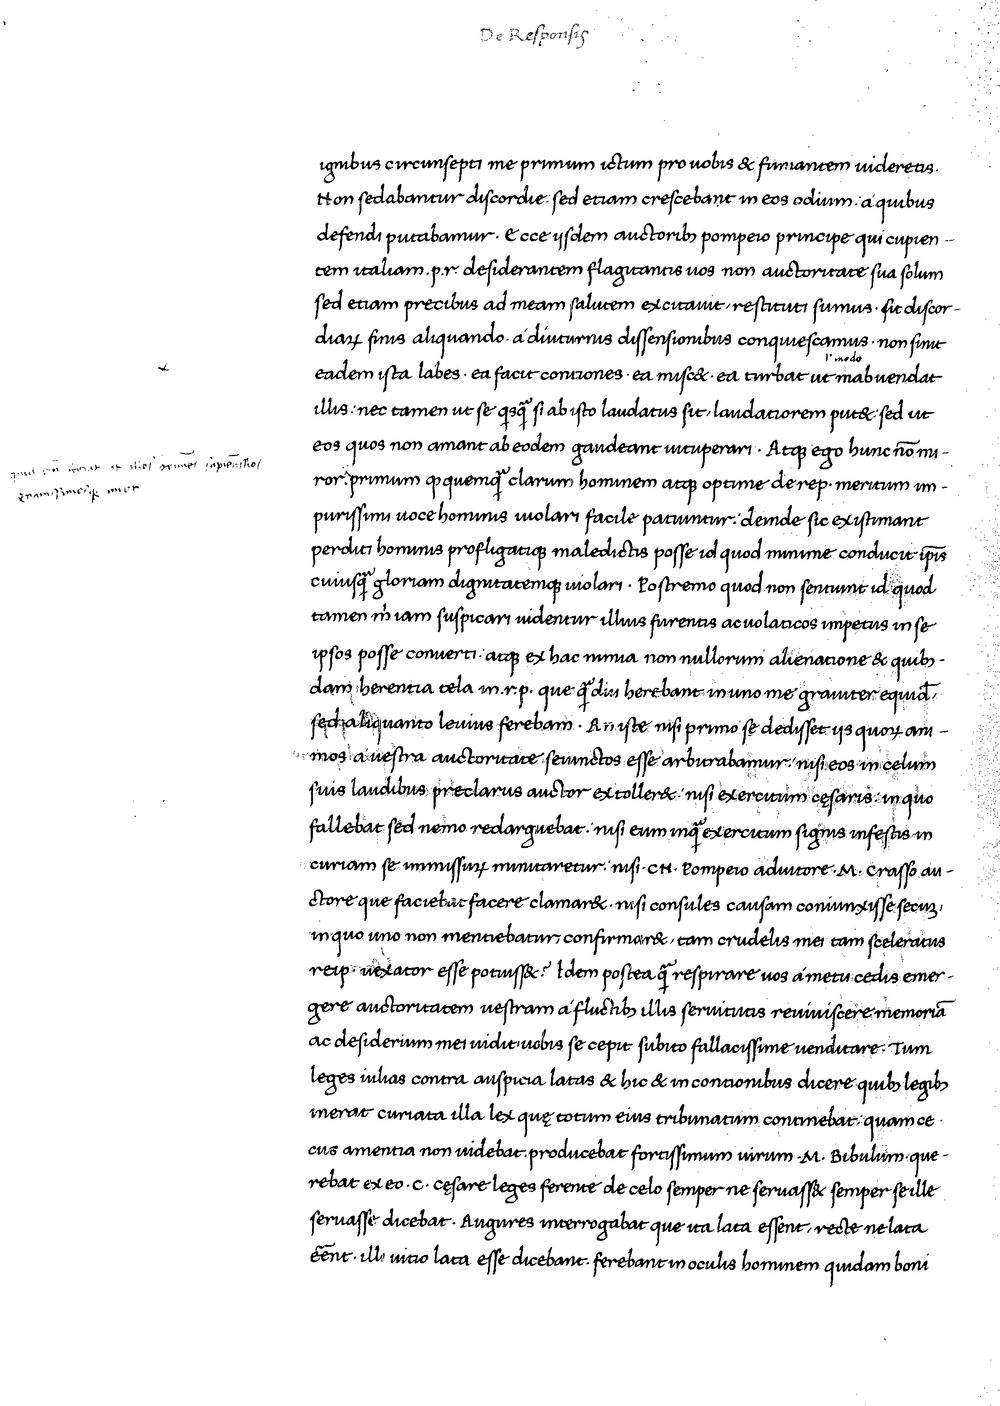 De Responsis
ignibus circunsepti me primum ictum pro uobis & fumantem uideretis.
Non sedabantur discordie: sed etiam crescebant in eos odium: a quibus
defendi putabamur. Ecce ijsdem auctorib; pompeio principe qui cupien-
tem italiam .p.r. desiderantem flagitantis uos non auctoritate sua solum
sed etiam precibus ad meam salutem excitauit, restituti sumus. sit discor-
diaꝝ finis aliquando. a diuturnis dissensionibus conquiescamus. non sinit
l' modo
eadem ista labes. ea facit contiones. ea misc&. ea turbat ut mab uendat
illis: nec tamen ut se qsq̄ si ab isto laudatus sit, laudatiorem put&: sed ut
eos quos non amant ab eodem gaudeant uituperari. Atqꝫ ego hunc nōn mi-
ror: primum qp quemq̄ clarum hominem atqꝫ optime de rep. meritum im-
purissimi uoce hominis uiolari facile patiuntur: deinde sic existimant
perditi hominis profligatiqꝫ maledictis posse id quod minime conducit ip̄is
cuiusq̄ gloriam dignitatemqꝫ uiolari. Postremo quod non sentiunt id quod
tamen m̄ iam suspicari uidentur illius furentis ac uolaticos impetus in se
ipsos posse conuerti. atqꝫ ex hac nimia non nullorum alienatione & quib;-
dam herentia tela in .r.p. que q̄diu herebant in uno me grauiter equid̄,
sed aliquanto leuius ferebam. An iste nisi primo se dedisset ijs quoꝝ ani-
mos a uestra auctoritate seiunctos esse arburabamur: nisi eos in celum
suis laudibus preclarus auctor extoller&: nisi exercitum cęsaris: in quo
fallebat sed nemo redarguebat: nisi eum inq̄ exercitum signis infestis in
curiam se immissuꝝ minitaretur: nisi .CN. Pompeio adiutore .M. Crasso au-
ctore que faciebat facere clamar&. nisi consules causam coniunxisse secuꝫ,
in quo uno non mentiebatur, confirmar&, tam crudelis mei tam sceleratus
reip. uexator esse potuiss&? Idem postea q̄ respirare uos a metu cedis emer-
gere auctoritatem uestram a fluctib; illis seruitutis reuiuiscere memoriā
ac desiderium mei uidit: uobis se cepit subito fallacissime uenditare: Tum
leges iulias contra auspicia latas & hic & in contionibus dicere quib; legib;
inerat curiata illa lex quę totum eius tribunatum continebat: quam ce
cus amentia non uidebat: producebat fortissimum uirum .M. Bibulum. que-
rebat ex eo .C. cęsare leges ferente de celo semper ne seruass& semper se ille
seruasse dicebat. Augures interrogabat que ita lata essent, recte ne lata
eēnt. illi uitio lata esse dicebant. ferebant in oculis hominem quidam boni